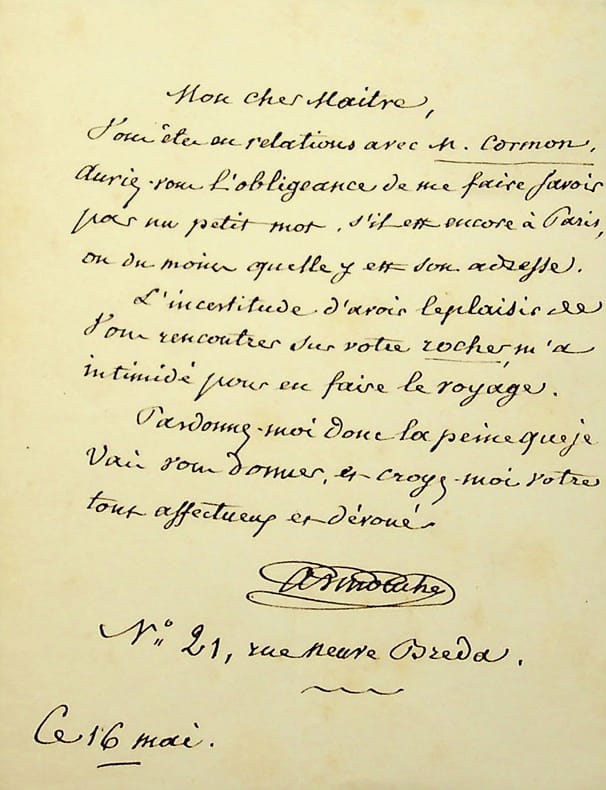 Mon cher Maitre,
Vous êtes en relations avec M. Cormon,
auriez-vous l'obligeance de me faire savoir
par un petit mot, s'il est encore à Paris,
ou du moins quelle y est son adresse.
L'incertitude d'avoir le plaisir de
vous rencontrer sur votre rocher, m'a
intimidé pour en faire le voyage.
Pardonnez-moi donc la peine que je
vais vous donner, et croyez-moi votre
tout affectueux et dévoué.
N° 21, rue neuve Breda.
Ce 16 mai.